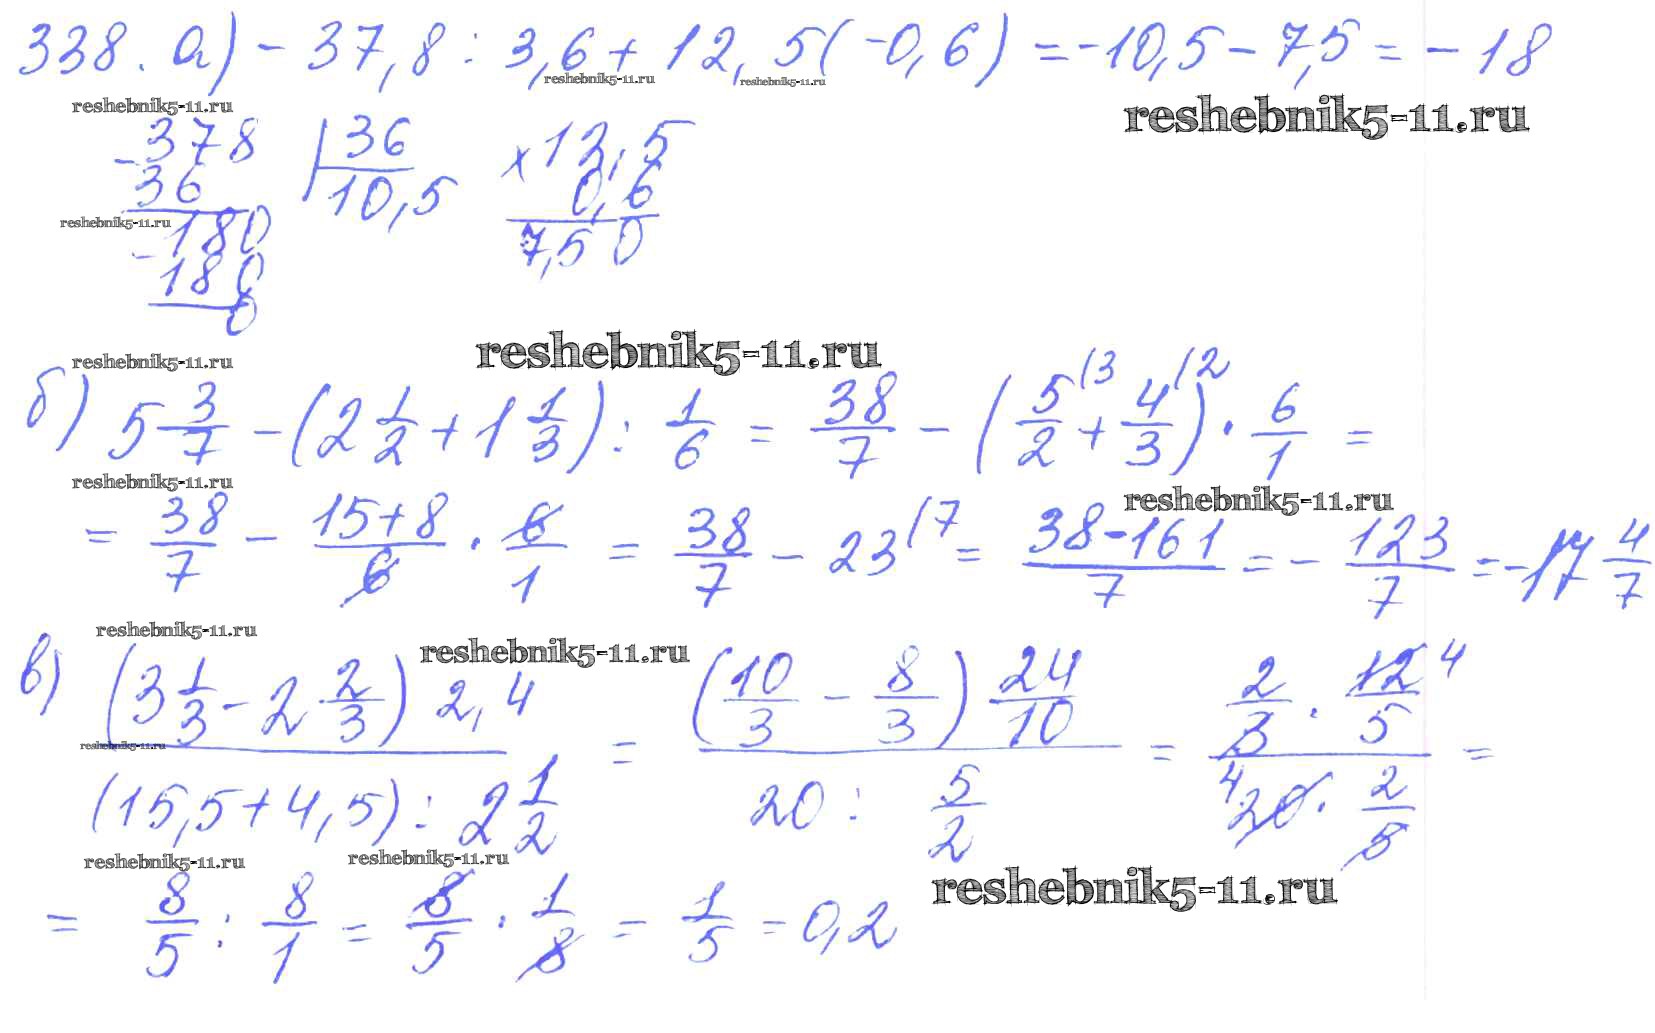 338. а) - 37,8 : 3,6 + 12,5(-0,6) = -10,5 - 7,5 = - 18
reshebnik5-11.ru reshebnik5-11.ru
reshebnik5-11.ru reshebnik5-11.ru
- 378 | 36 × 12,5
36 10,5 0,6
reshebnik5-11.ru - 180 7,50
180
0
reshebnik5-11.ru reshebnik5-11.ru
б) 5 3/7 - (2 1/2 + 1 1/3) : 1/6 = 38/7 - (5/2 (3 + 4/3 (2) · 6/1 =
reshebnik5-11.ru reshebnik5-11.ru
= 38/7 - (15+8)/6 · 6/1 = 38/7 - 23 (7 = (38-161)/7 = - 123/7 = -17 4/7
reshebnik5-11.ru reshebnik5-11.ru
в) (3 1/3 - 2 2/3) 2,4 / (15,5+4,5) : 2 1/2 = (10/3 - 8/3) 24/10 / 20 : 5/2 = 2/3 · 12/5 4 / 4 20 · 2/5 =
reshebnik5-11.ru
reshebnik5-11.ru reshebnik5-11.ru reshebnik5-11.ru
= 8/5 : 8/1 = 8/5 · 1/8 = 1/5 = 0,2